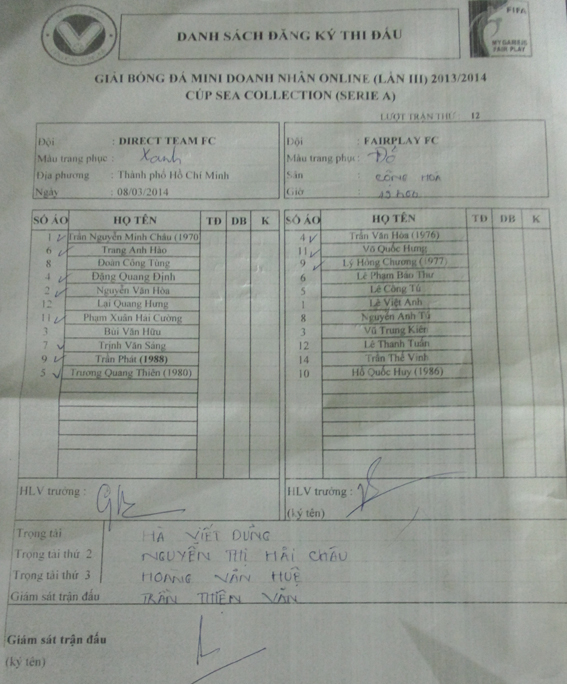 DANH SÁCH ĐĂNG KÝ THI ĐẤU
FIFA
MY GAME IS
FAIR PLAY
GIẢI BÓNG ĐÁ MINI DOANH NHÂN ONLINE (LẦN III) 2013/2014
CÚP SEA COLLECTION (SERIE A)
LƯỢT TRẬN THỨ: 12
Đội : DIRECT TEAM FC
Màu trang phục : Xanh
Địa phương : Thành phố Hồ Chí Minh
Ngày : 08/03/2014
Đội : FAIRPLAY FC
Màu trang phục : Đỏ
Sân : CỘNG HOÀ
Giờ
SỐ ÁO HỌ TÊN TĐ DB K
1 Trần Nguyễn Minh Châu (1970
6 Trang Anh Hào
8 Đoàn Công Tùng
4 Đặng Quang Định
2 Nguyễn Văn Hòa
12 Lại Quang Hưng
11 Phạm Xuân Hải Cường
3 Bùi Văn Hữu
7 Trịnh Văn Sáng
9 Trần Phát (1988)
5 Trương Quang Thiên (1980)
SỐ ÁO HỌ TÊN TĐ DB K
4 Trần Văn Hòa (1976)
11 Võ Quốc Hưng
9 Lý Hồng Chương (1977)
6 Lê Phạm Bán Thư
5 Lê Công Tú
1 Lê Việt Anh
8 Nguyễn Anh Tú
3 Vũ Trung Kiên
12 Lê Thanh Tuấn
14 Trần Thế Vinh
10 Hồ Quốc Huy (1986)
HLV trưởng :
HLV trưởng :
(ký tên)
Trọng tài HÀ VIẾT DŨNG
Trọng tài thứ 2 NGUYỄN THỊ HẢI CHÂU
Trọng tài thứ 3 HOÀNG VĂN HUỆ
Giám sát trận đấu TRẦN THIỆN VĂN
Giám sát trận đấu
(ký tên)